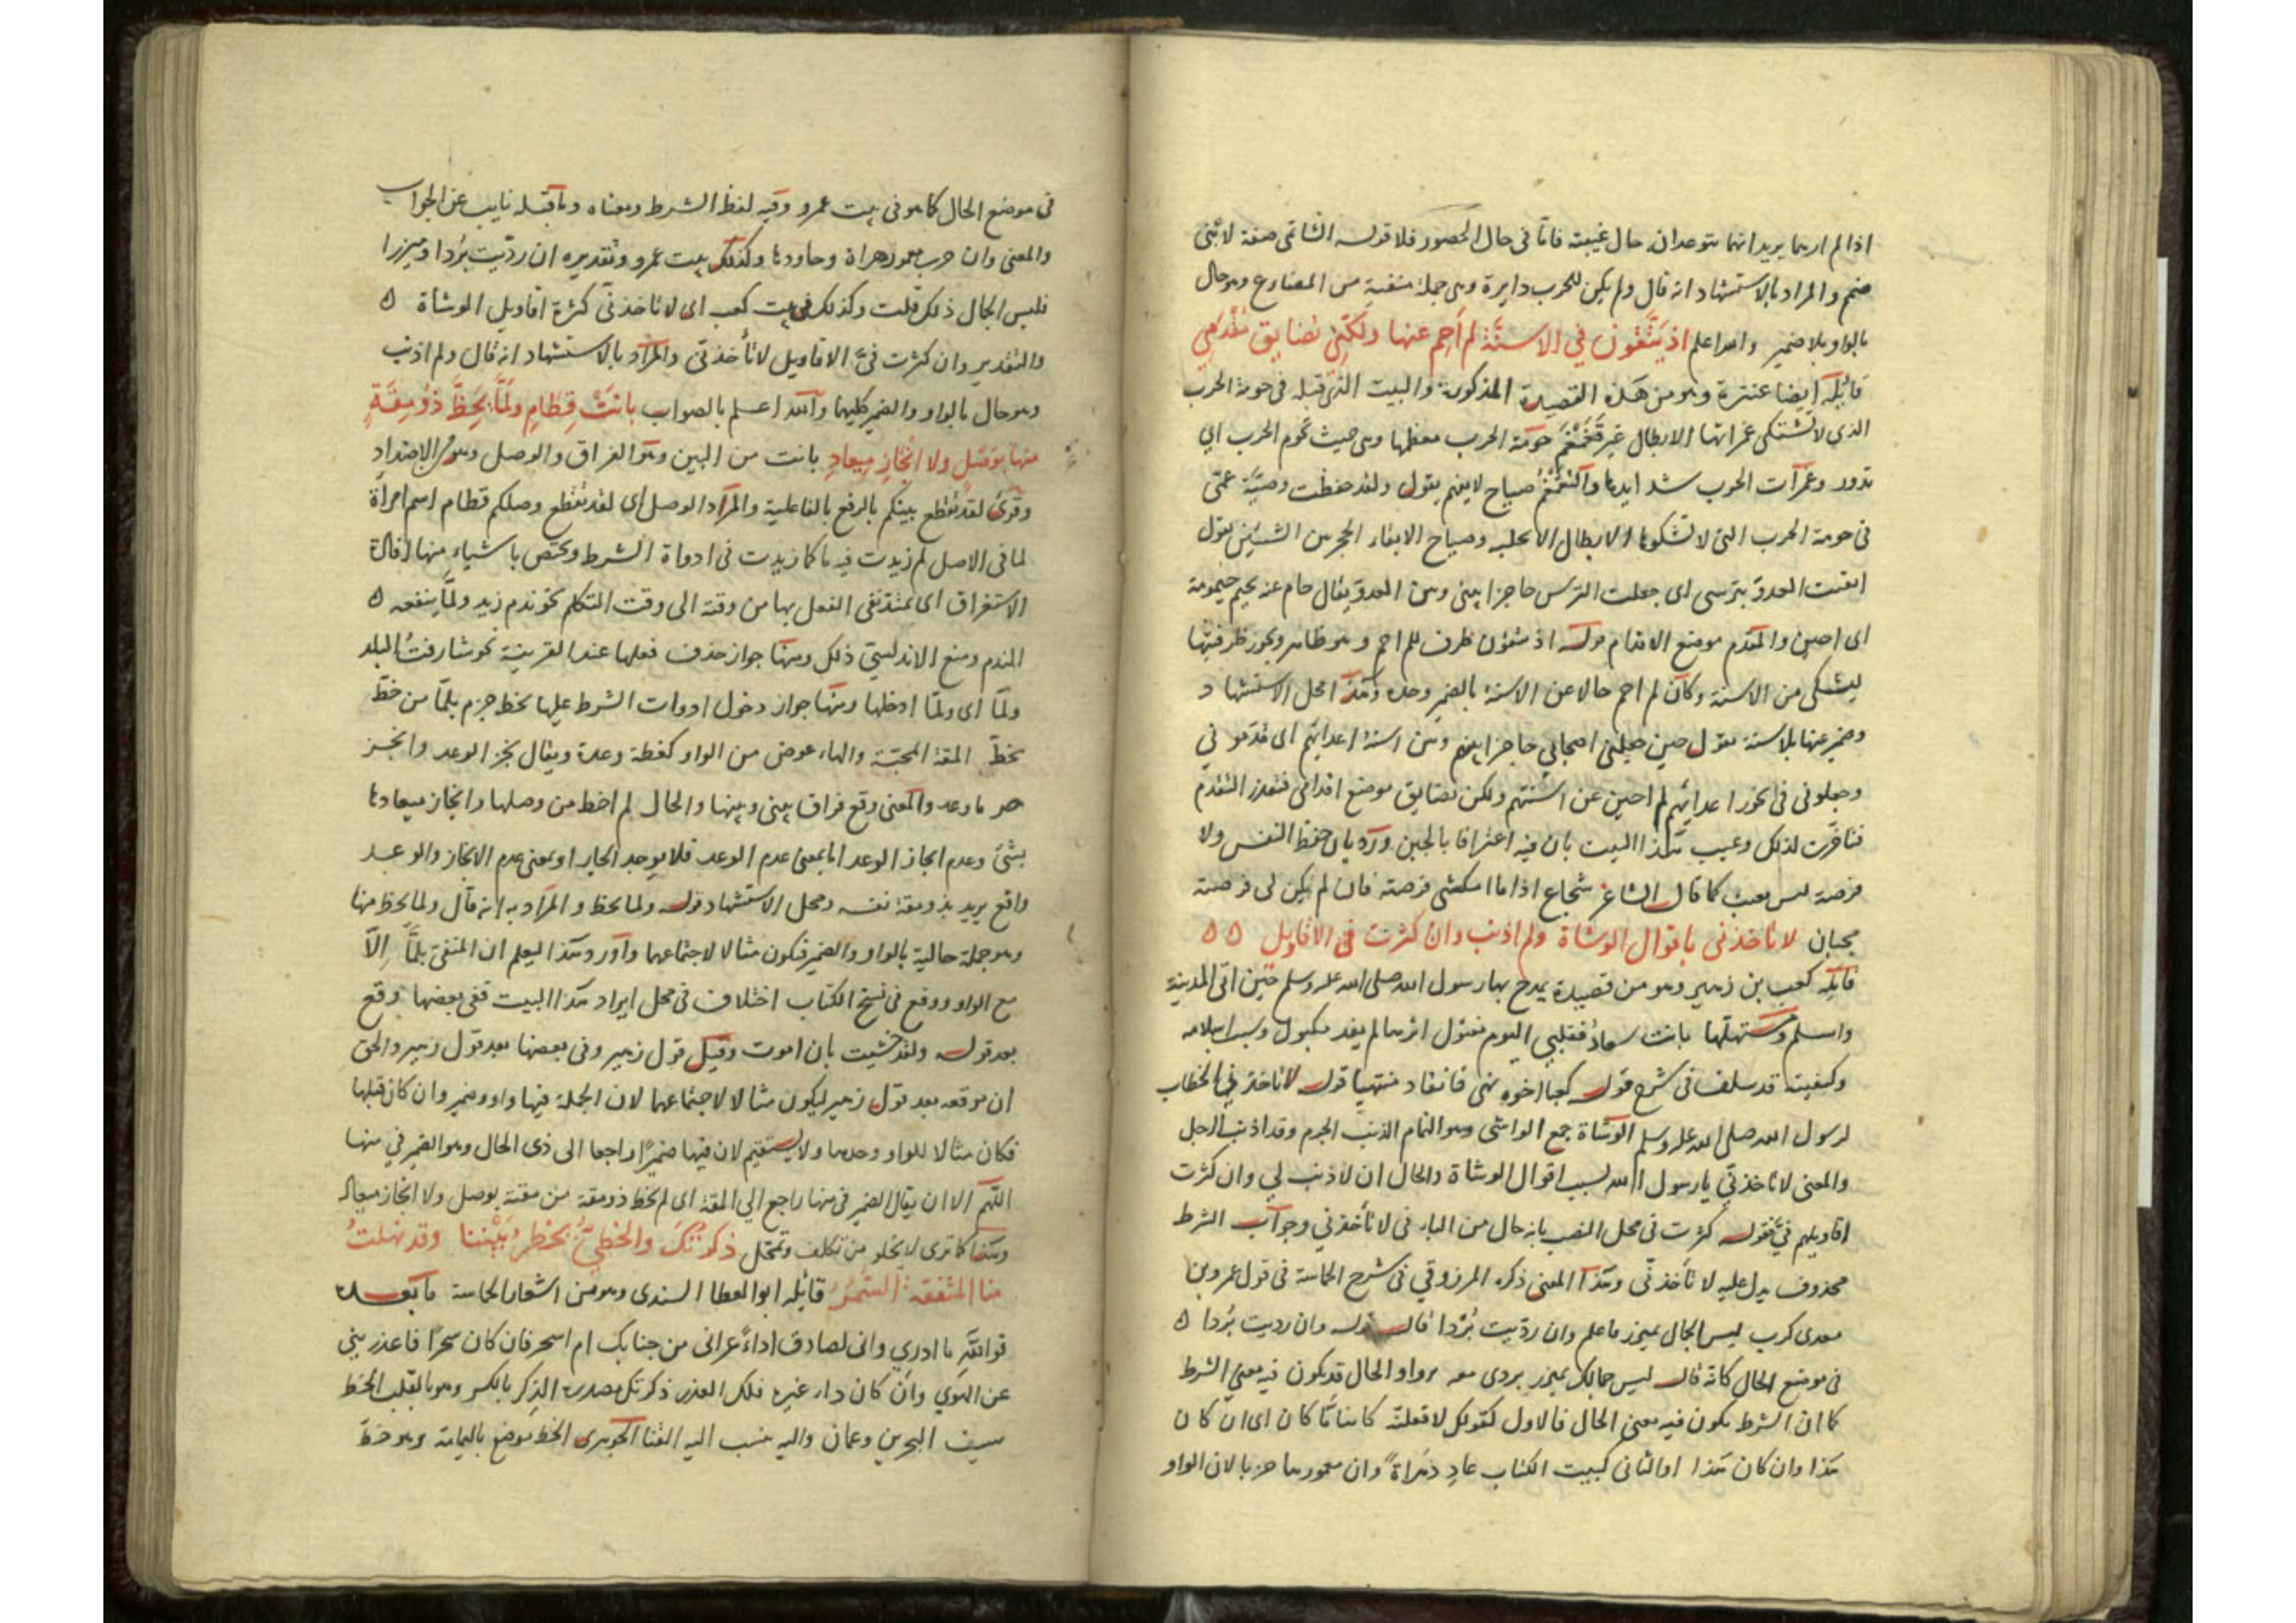 اذا لم ارهما يريد انهما يتوعدان حال غيبته فاما في حال الحضور فلا قوله الشاتمى صفة لابنى
ضمضم والمراد بالاستشهاد انه قال ولم يكن للحرب دايرة وهى جملة منفية من المضارع وهو حال
بالواو بلا ضمير والله اعلم اذ يتقون في الاسنة لم احم عنها ولكني تضايق مقدمي
قائله ايضا عنترة وهو من هذه القصيدة المذكورة والبيت الذى قبله في حومة الحرب
الذى لا تشتكى غمراتها الابطال غير تغمغم حومة الحرب معظمها وهى حيث تحوم الحرب اي
تدور وغمرات الحرب شدايدها والتغمغم صياح لا يفهم يقول ولقد حفظت وصية عمى
في حومة الحرب التى لا تشكوها الابطال الا بجلبة وصياح يقول
اتقيت العدو بترسى اى جعلت الترس حاجزا بينى وبين العدو يقال خام عنه يخيم خيمومة
اى اجبن والمقدم موضع الاقدام قوله اذ يتقون ظرف للم احم وهو ظاهر ويجوز ظرفيتها
ليشتكى من الاسنة وكان لم احم حالا عن الاسنة بالضمير وحده وهذا محل الاستشهاد
وضمير عنها للاسنة يقول حين جعلنى اصحابي حاجزا بينهم وبين اسنة اعدائهم اى قدمونى
وجعلونى في نحور اعدائهم لم اجبن عن اسنتهم ولكن تضايق موضع اقدامى فتعذر التقدم
فتأخرت لذلك وعيب هذا البيت بان فيه اعترافا بالجبن ورد بان حفظ النفس ولا
فرصة ليس بعيب كما قال الشاعر شجاع اذا ما امكنتنى فرصة فان لم يكن لى فرصة
فجبان لا تاخذنى باقوال الوشاة ولم اذنب وان كثرت في الاقاويل
قائله كعب بن زهير وهو من قصيدة يمدح بها رسول الله صلى الله عليه وسلم حين اتى المدينة
واسلم ومستهلها بانت سعاد فقلبي اليوم متبول اثرها لم يفد مكبول وسبب اسلامه
وكيفيته قد سلف في شرح قوله كعبا اخوه نهى فانقاد منتهيا قوله لا تاخذنى الخطاب
لرسول الله صلى الله عليه وسلم الوشاة جمع الواشى وهو النمام الذنب الجرم وقد اذنب الرجل
والمعنى لا تاخذنى يا رسول الله بسبب اقوال الوشاة والحال ان لا ذنب لي وان كثرت
اقاويلهم فيّ فقوله كثرت في محل النصب بانه حال من الياء في لا تأخذنى وجواب الشرط
محذوف يدل عليه لا تأخذنى وهذا المعنى ذكره المرزوقي في شرح الحماسة في قول عمرو بن
معدى كرب ليس الجمال بميزر فاعلم وان رديت بردا قال قوله وان رديت بردا ٥
في موضع الحال كانه قال ليس جمالك بميزر بردى معه برد والحال قد يكون فيه معنى الشرط
كما ان الشرط يكون فيه معنى الحال فالاول كقولك لافعلنه كاينا ما كان اى ان كان
هذا وان كان هذا والثانى كبيت الكتاب عاد دهراة وان معمورها خربا لان الواو
في موضع الحال كما هو في بيت عمرو وفيه لفظ الشرط ومعناه وما قبله نايب عن الجواب
والمعنى وان خرب معمور هراة وعاودها وكذلك بيت عمرو وتقديره ان رديت بردا وميزرا
فليس الجمال ذلك قلت وكذلك في بيت كعب اى لا تاخذنى كثرة اقاويل الوشاة ٥
والتقدير وان كثرت فيّ الاقاويل لا تأخذنى والمراد بالاستشهاد انه قال ولم اذنب
وهو حال بالواو والضمير كليهما والله اعلم بالصواب بانت قطام ولما يحظ ذو مقة
منها بوصل ولا انجاز ميعاد بانت من البين وهو الفراق والوصل وهو من الاضداد
وقرئ لقد تقطع بينكم بالرفع بالفاعلية والمراد الوصل اى لقد تقطع وصلكم قطام اسم امرأة
لما في الاصل لم زيدت فيه ما كما زيدت في ادواة الشرط ويختص باشياء منها افادة
الاستغراق اى يمتد نفى الفعل بها من وقته الى وقت التكلم نحو ندم زيد ولما ينفعه ٥
الندم ومنع الاندلسى ذلك ومنها جواز حذف فعلها عند القرينة نحو شارفت البلد
ولما اى ولما ادخلها ومنها جواز دخول ادوات الشرط عليها يحظ جزم بلما من حظ
يحظ المقة المحبة والهاء عوض من الواو كعظة وعدة ويقال نجز الوعد وانجز
حر ما وعد والمعنى وقع فراق بينى وبينها والحال لم احظ من وصلها وانجاز ميعادها
بشئ وعدم انجاز الوعد اما بمعنى عدم الوعد فلا يوجد انجاز او بمعنى عدم الانجاز والوعد
واقع يريد بذو مقة نفسه ومحل الاستشهاد قوله ولما يحظ والمراد به انه قال ولما يحظ منها
وهو جملة حالية بالواو والضمير فتكون مثالا لاجتماعهما واورد هذا ليعلم ان المنفى بلما الا
مع الواو ووقع في نسخ الكتاب اختلاف في محل ايراد هذا البيت ففى بعضها وقع
بعد قوله ولقد خشيت بان اموت وقبل قول زهير وفى بعضها بعد قول زهير والحق
ان موقعه بعد قول زهير ليكون مثالا لاجتماعهما لان الجملة فيها واو وضمير وان كان قبلها
فكان مثالا للواو وحدها ولا يستقيم لان فيها ضميرا راجعا الى ذى الحال وهو الضمير في منها
اللهم الا ان يقال الضمير في منها راجع الي المقة اى لم يحظ ذو مقة من مقته بوصل ولا انجاز ميعاد
وهذا كما ترى لا يخلو من تكلف وتمحل ذكرتك والخطي يخطر بيننا وقد نهلت
منا المثقفة السمر قائله ابو العطا السندى وهو من اشعار الحماسة ما بعده
فوالله ما ادري وانى لصادق اداء عرانى من جنابك ام سحر فان كان سحرا فاعذرينى
عن الهوي وان كان داء غيره فلك العذر ذكرتك مصدره الذكر بالكسر وهو بالقلب الخط
سيف البحرين وعمان واليه ينسب اليه القنا الجوهرى الخط موضع باليمامة وهو خط